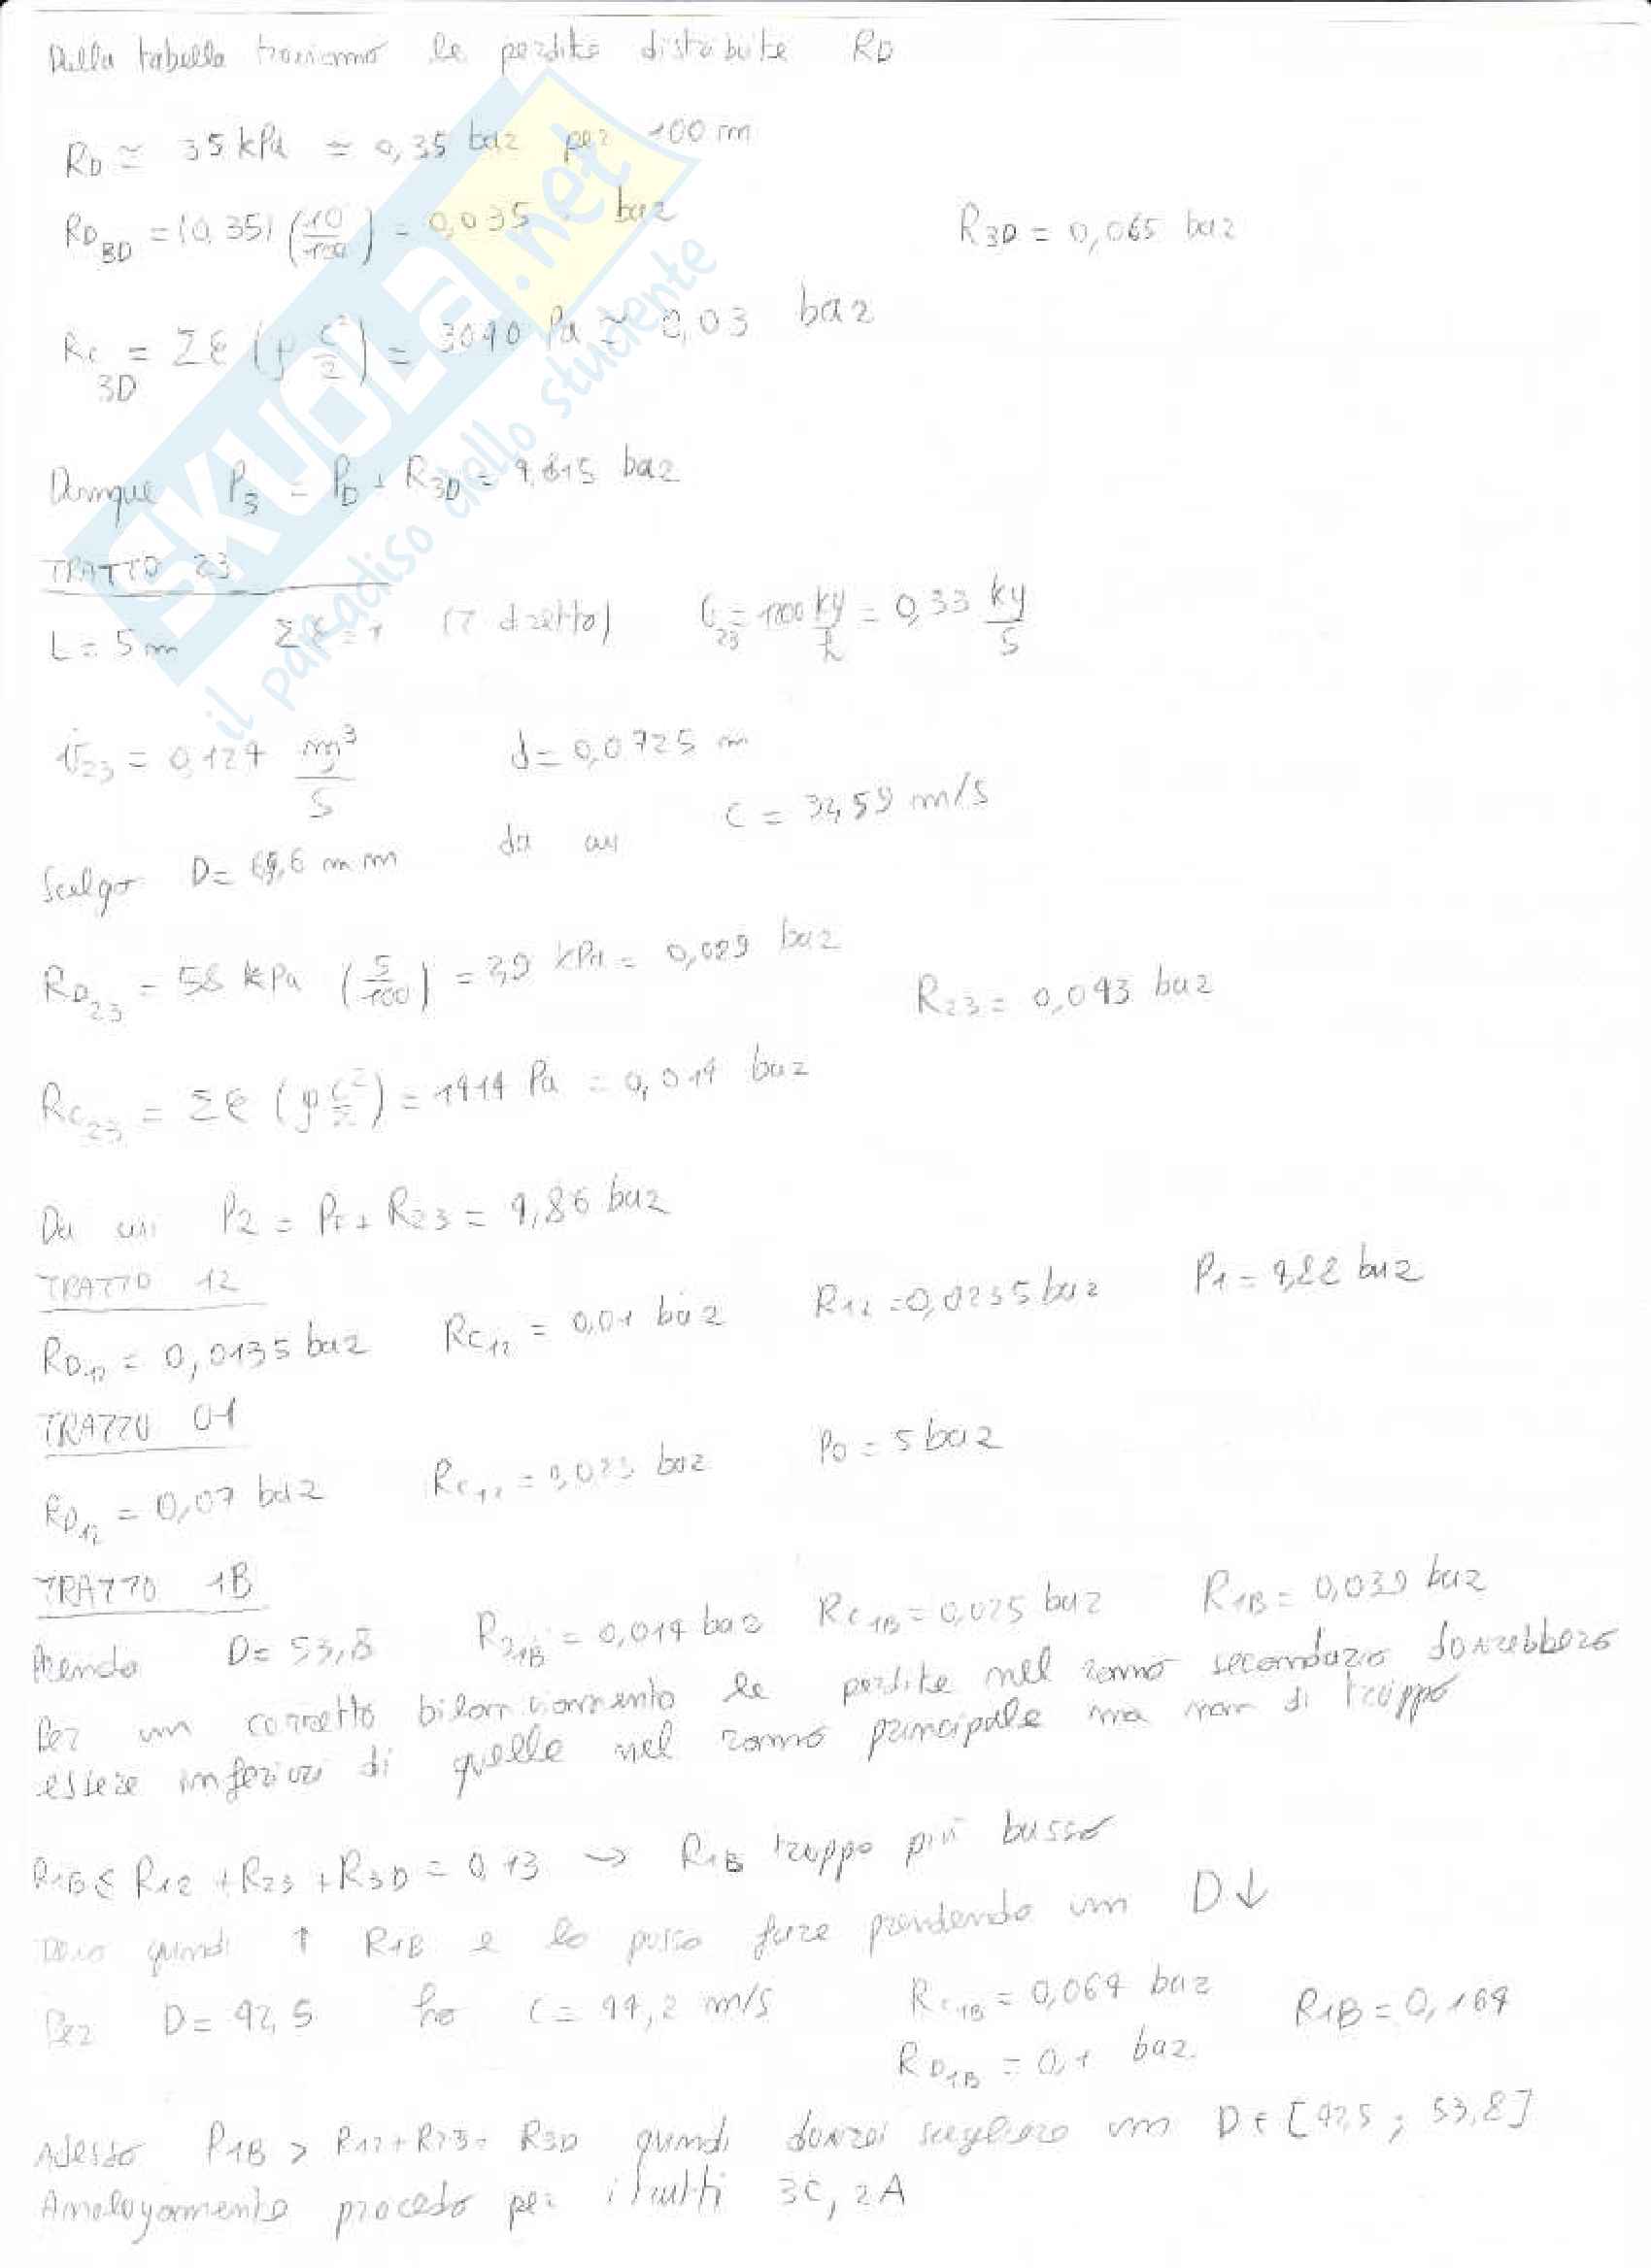 Dalla tabella troviamo le perdite distribuite RD
RD ≃ 35 kPa ≃ 0,35 bar per 100 m
RD3D = (0,35) (10/100) = 0,035 bar
R3D = 0,065 bar
Rc3D = Σξ (ρ c²/2) = 3040 Pa ≃ 0,03 bar
Dunque P3 = PD + R3D = 4,815 bar
TRATTO 23
L = 5 m Σξ = 1 (T diretto) G23 = 1200 kg/h = 0,33 kg/s
V̇23 = 0,127 m³/s d = 0,0725 m
Scelgo D = 69,6 mm da cui c = 34,59 m/s
RD23 = 58 kPa (5/100) = 2,9 kPa = 0,029 bar
R23 = 0,043 bar
Rc23 = Σξ (ρ c²/2) = 1414 Pa = 0,014 bar
Da cui P2 = P3 + R23 = 4,86 bar
TRATTO 12
RD12 = 0,0135 bar Rc12 = 0,01 bar R12 = 0,0235 bar P1 = 4,88 bar
TRATTO 01
RD12 = 0,07 bar Rc12 = 0,023 bar P0 = 5 bar
TRATTO 1B
Prendo D = 53,8 RD1B = 0,014 bar Rc1B = 0,025 bar R1B = 0,039 bar
Per un corretto bilanciamento le perdite nel ramo secondario dovrebbero
essere inferiori di quelle nel ramo principale ma non di troppo
R1B ≤ R12 + R23 + R3D = 0,13 → R1B troppo più basso
Devo quindi ↑ R1B e lo posso fare prendendo un D↓
Per D = 42,5 ho c = 44,2 m/s Rc1B = 0,064 bar R1B = 0,164
RD1B = 0,1 bar
Adesso R1B > R12 + R23 + R3D quindi dovrei scegliere un D ∈ [42,5 ; 53,8]
Analogamente procedo per i tratti 3C, 2A
SKUOLA.net
il paradiso dello studente